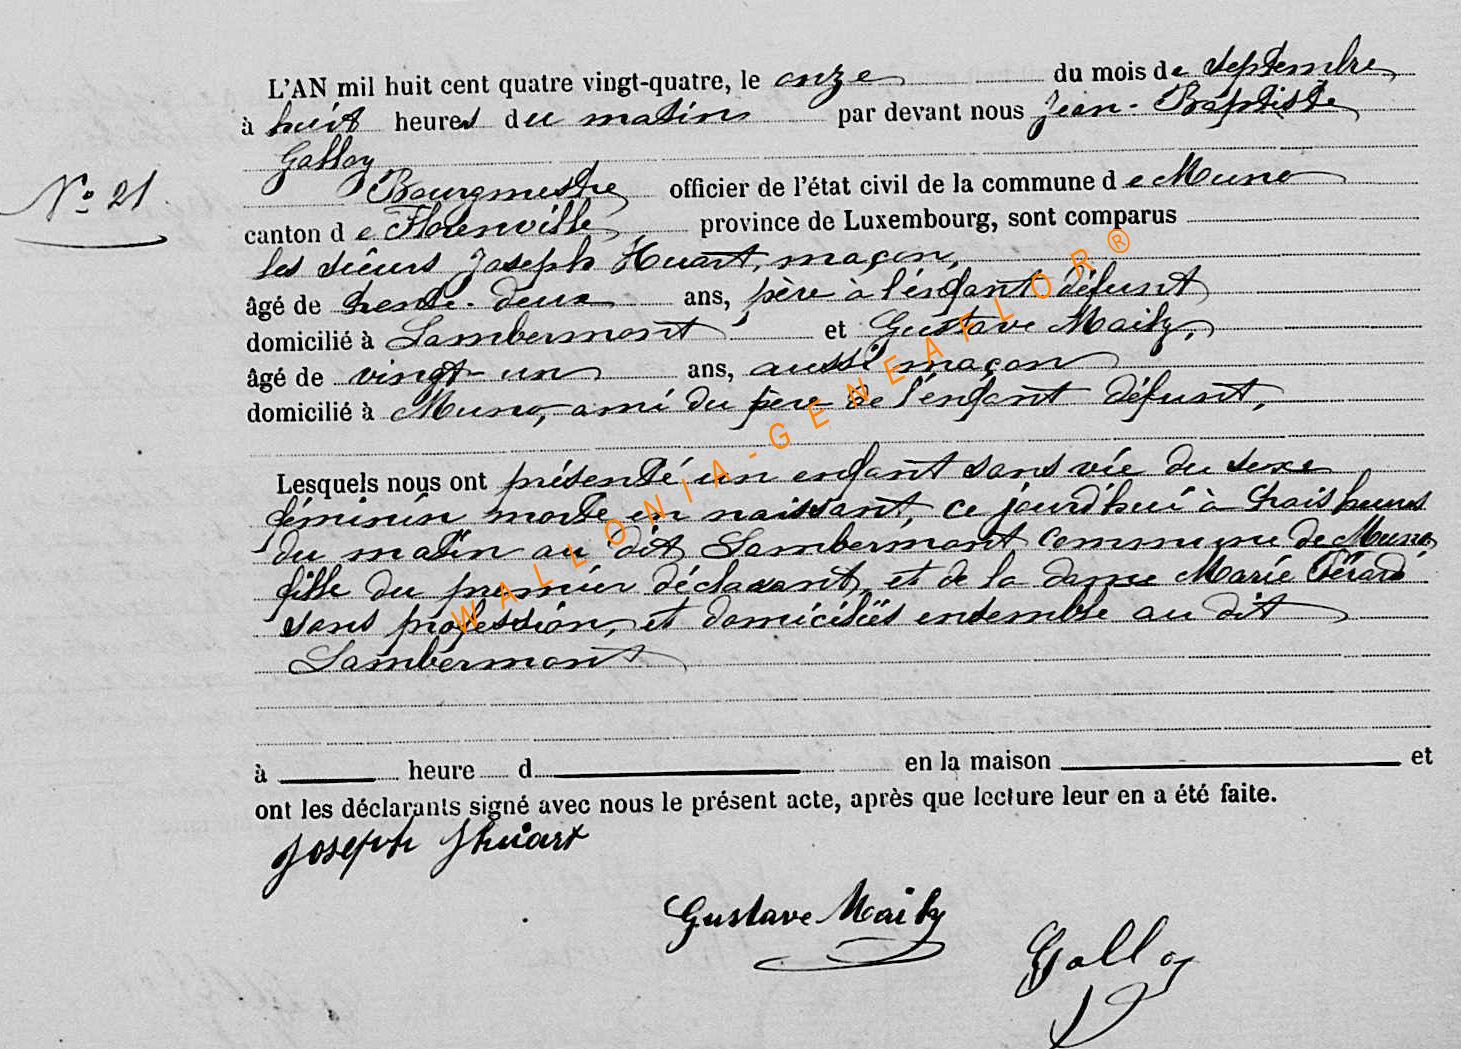 L'AN mil huit cent quatre vingt-quatre, le onze du mois de septembre
à huit heures du matin par devant nous Jean-Baptiste
Galloy
N° 21
Bourgmestre officier de l'état civil de la commune de Muno
canton de Florenville province de Luxembourg, sont comparus
les sieurs Joseph Huart, maçon,
âgé de trente-deux ans, père à l'enfant défunt
domicilié à Lambermont et Gustave Mailz,
âgé de vingt-un ans, aussi maçon
domicilié à Muno, ami du père de l'enfant défunt,
Lesquels nous ont présenté un enfant sans vie du sexe
féminin morte en naissant, ce jourd'hui à trois heures
du matin au dit Lambermont commune de Muno
fille du premier déclarant, et de la dame Marie Gérard
sans profession, et domiciliés ensemble au dit
Lambermont
à heure d en la maison et
ont les déclarants signé avec nous le présent acte, après que lecture leur en a été faite.
Joseph Huart
Gustave Mailz
Galloy
WALLONIA-GENEAFLOR®